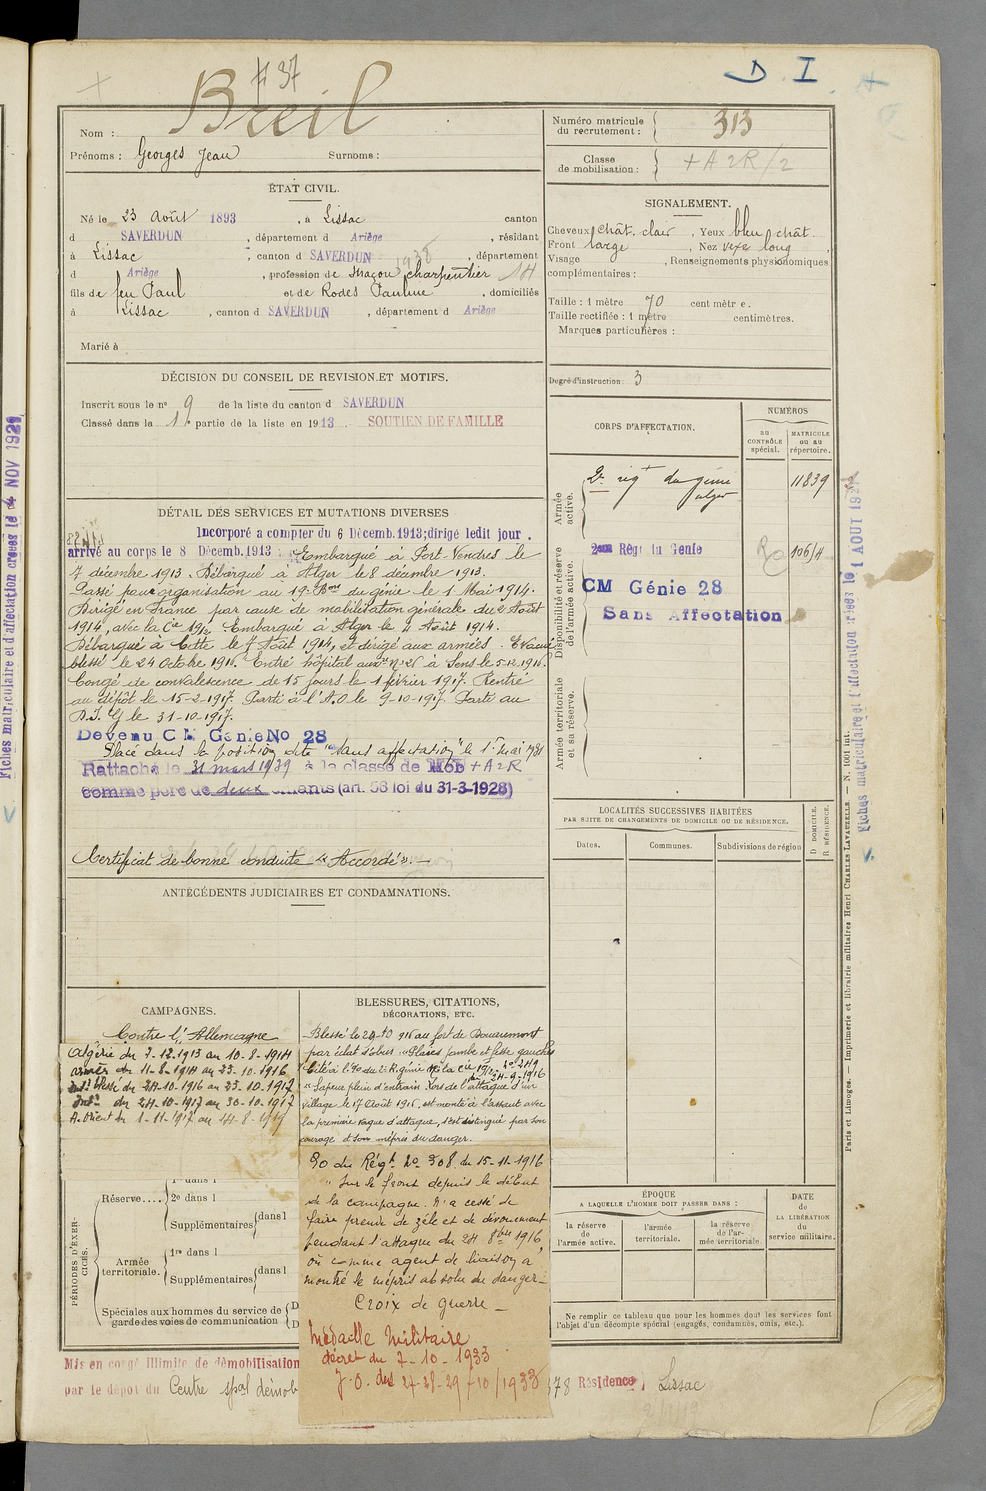 # 37
D. I
Nom : Breil
Prénoms : Georges Jean Surnoms :
Numéro matricule du recrutement : 313
Classe de mobilisation : + A 2R/2
ÉTAT CIVIL.
Né le 23 Août 1893, à Lissac canton
d SAVERDUN, département d Ariège, résidant
à Lissac, canton d SAVERDUN, département
d Ariège, profession de maçon charpentier
fils de feu Paul et de Rodes Pauline, domiciliés
à Lissac, canton d SAVERDUN, département d Ariège
Marié à
SIGNALEMENT.
Cheveux chât. clair, Yeux bleu chât.
Front large, Nez vexe long,
Visage , Renseignements physionomiques
complémentaires :
Taille : 1 mètre 70 centimètre.
Taille rectifiée : 1 mètre centimètres.
Marques particulières :
Degré d'instruction : 3
DÉCISION DU CONSEIL DE REVISION ET MOTIFS.
Inscrit sous le n° 9 de la liste du canton d SAVERDUN
Classé dans la 1e partie de la liste en 1913. SOUTIEN DE FAMILLE
DÉTAIL DES SERVICES ET MUTATIONS DIVERSES
Incorporé a compter du 6 Décemb. 1913; dirigé ledit jour.
arrivé au corps le 8 Décemb. 1913 Embarqué à Port-Vendres le
7 décembre 1913. Débarqué à Alger le 8 décembre 1913.
Passé pour organisation au 19e Bon du génie le 1 Mai 1914.
Dirigé en France par cause de mobilisation générale du 2 Août
1914, avec la Cie 19/2. Embarqué à Alger le 4 Août 1914.
Débarqué à Cette le 7 Août 1914, et dirigé aux armées. Evacué
blessé le 24 Octobre 1916. Entré hôpital auxre n° 28 à Sens le 5-12-1916.
Congé de convalescence de 15 jours le 1 février 1917. Rentré
au dépôt le 15-2-1917. Parti à l'A.O le 9-10-1917. Parti au
le 31-10-1917.
Devenu C M Génie No 28
Placé dans la position dite "sans affectation" le 1er mai 1931
Rattaché le 31 mars 1939 à la classe de Mob + A 2R
comme père de deux enfants (art. 58 loi du 31-3-1928)
Certificat de bonne conduite "Accordé".
ANTÉCÉDENTS JUDICIAIRES ET CONDAMNATIONS.
CORPS D'AFFECTATION.
NUMÉROS
au CONTRÔLE spécial.
MATRICULE ou au répertoire.
Armée active.
2e régt du génie 11839
alger
Disponibilité et réserve de l'armée active.
2eme Régt du Genie 106/H
CM Génie 28
Sans Affectation
Armée territoriale et sa réserve.
LOCALITÉS SUCCESSIVES HABITÉES
PAR SUITE DE CHANGEMENTS DE DOMICILE OU DE RÉSIDENCE.
Dates.
Communes.
Subdivisions de région
D DOMICILE.
R RÉSIDENCE.
CAMPAGNES.
Contre l'Allemagne
Algérie du 7-12-1913 au 10-8-1914
armées du 11-8-1914 au 23-10-1916
Intr blessé du 24-10-1916 au 23-10-1917
Intr du 24-10-1917 au 30-10-1917
A. Orient du 1-11-1917 au 14-8-1919
BLESSURES, CITATIONS,
DÉCORATIONS, ETC.
Blessé le 24-10 916 au fort de Douaumont
par éclat d'obus "Plaies jambe et fesse gauches
Cité à l'O. du 2e R. génie de la Cie 19/2 n° 249
du 24-9-1916
"Sapeur plein d'entrain. Lors de l'attaque d'un
village le 17 Août 1916, est monté à l'assaut avec
la première vague d'attaque, s'est distingué par son
courage et son mépris du danger.
O du Régt N° 308 du 15-11-1916
"Sur le front depuis le début
de la campagne. N'a cessé de
faire preuve de zèle et de dévouement
pendant l'attaque du 24 8bre 1916,
où comme agent de liaison a
montré le mépris absolu du danger_
Croix de guerre_
Médaille Militaire
décret du 7-10-1933
J.O. des 27-28-29/10/1933
PÉRIODES D'EXERCICES.
Réserve....
1re dans l
2e dans l
Supplémentaires dans l
Armée territoriale.
1re dans l
Supplémentaires dans l
Spéciales aux hommes du service de garde des voies de communication
ÉPOQUE
A LAQUELLE L'HOMME DOIT PASSER DANS :
la réserve de l'armée active.
l'armée territoriale.
la réserve de l'armée territoriale.
DATE de LA LIBÉRATION du service militaire.
Ne remplir ce tableau que pour les hommes dont les services font
l'objet d'un décompte spécial (engagés, condamnés, omis, etc.).
Mis en congé illimité de démobilisation
par le dépôt du Centre spal démob 378 Résidence Lissac
Paris et Limoges. — Imprimerie et librairie militaires Henri CHARLES LAVAUZELLE. — N. 1001 int.
Fiches matriculaire et d'affectation créées le 4 NOV 1929
Fiches matriculaire et d'affectation créées le 1 AOUT 192